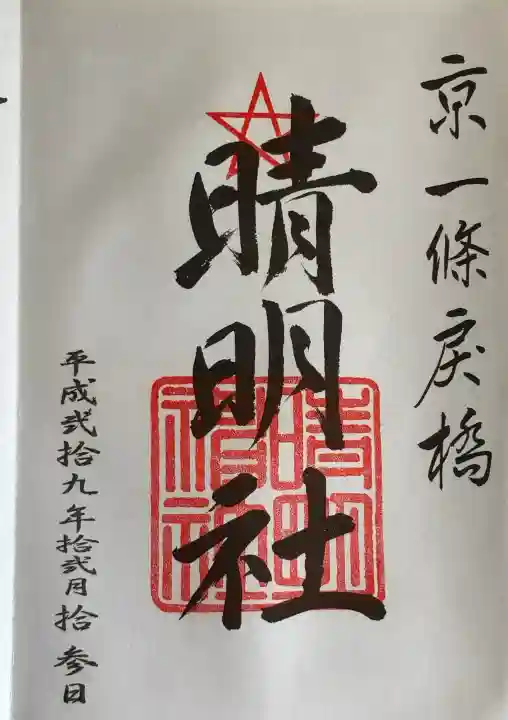 京一條戻橋
晴明社
晴明神社
平成弐拾九年拾弐月拾参日